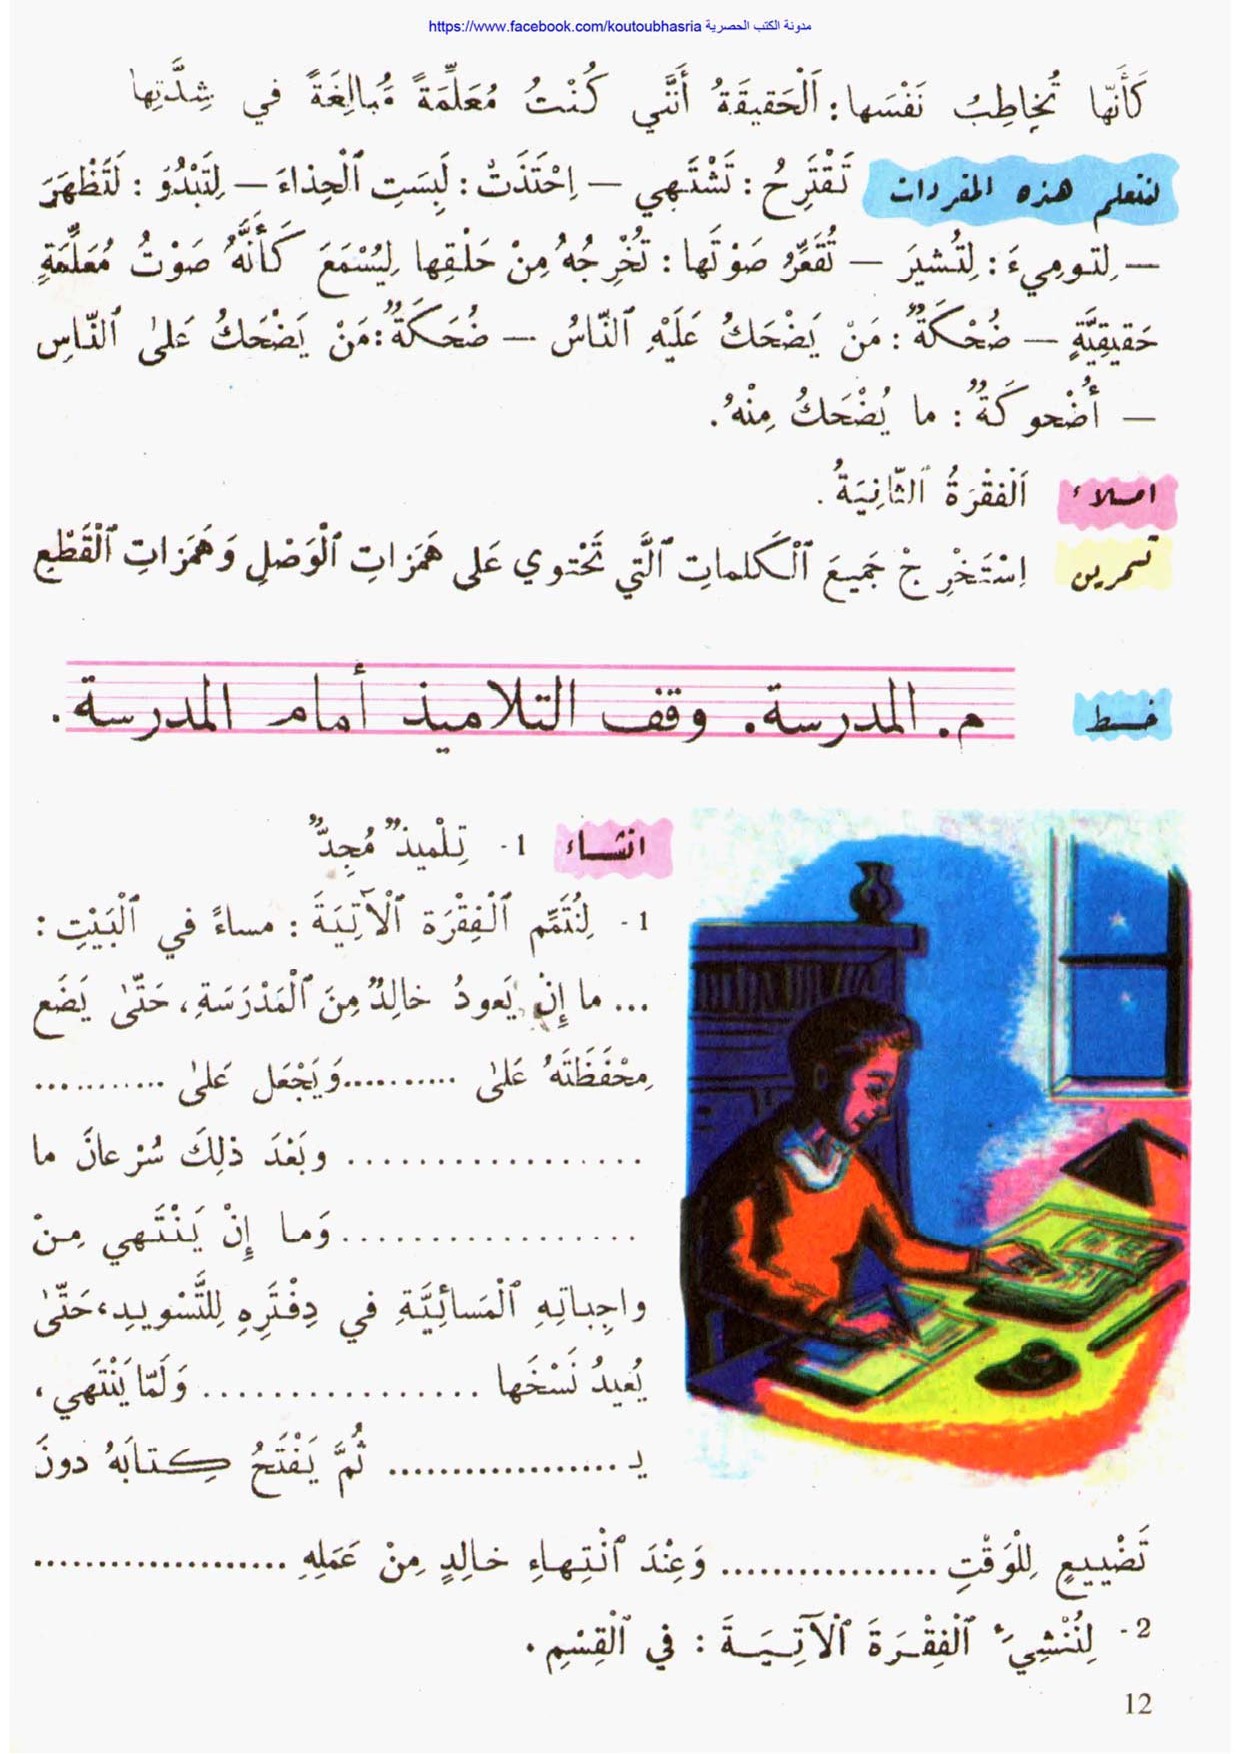 https://www.facebook.com/koutoubhasria مدونة الكتب الحصرية
كَأَنَّها تُخاطِبُ نَفْسَها: اَلْحَقيقَةُ أَنَّني كُنْتُ مُعَلِّمَةً مُبالِغَةً في شِدَّتِها
لنتعلم هذه المفردات تَقْتَرِحُ: تَشْتَهي — اِحْتَذَتْ: لَبِسَتِ ٱلْحِذاءَ — لِتَبْدُوَ: لَتَظْهَرَ
— لِتومِيءَ: لِتُشيرَ — تُقَعِّرُ صَوْتَها: تُخْرِجُهُ مِنْ حَلْقِها لِيُسْمَعَ كَأَنَّهُ صَوْتُ مُعَلِّمَةٍ
حَقيقِيَّةٍ — ضُحْكَةٌ: مَنْ يَضْحَكُ عَلَيْهِ ٱلنّاسُ — ضُحَكَةٌ: مَنْ يَضْحَكُ عَلىٰ ٱلنّاسِ
— أُضْحوكَةٌ: ما يُضْحَكُ مِنْهُ.
املاء اَلْفِقْرَةُ ٱلثّانِيَةُ.
تمرين اِسْتَخْرِجْ جَميعَ ٱلْكَلِماتِ ٱلَّتي تَحْتوي عَلى هَمَزاتِ ٱلْوَصْلِ وَهَمَزاتِ ٱلْقَطْعِ
خط م. المدرسة. وقف التلاميذ أمام المدرسة.
انشاء 1- تِلْميذٌ مُجِدٌّ
1- لِنُتَمِّم ٱلْفِقْرَة ٱلْآتِيَةَ: مساءً في ٱلْبَيْتِ:
... ما إِنْ يَعودُ خالِدٌ مِنَ ٱلْمَدْرَسَةِ، حَتّىٰ يَضَع
مِحْفَظَتَهُ عَلىٰ ..........وَيَجْعَل عَلىٰ ..........
.................. وبَعْدَ ذلِكَ سُرْعانَ ما
..................وَما إِنْ يَنْتَهي مِنْ
واجِباتِهِ ٱلْمَسائِيَّةِ في دِفْتَرِهِ لِلتَّسْويدِ، حَتّىٰ
يُعيدُ نَسْخَها ................. وَلَمّا يَنْتَهي،
يـ .................. ثُمَّ يَفْتَحُ كِتابَهُ دونَ
تَضْييعٍ لِلْوَقْتِ ................. وَعِنْدَ ٱنْتِهاءِ خالِدٍ مِنْ عَمَلِهِ ....................
2- لِنُنْشِيءِ ٱلْفِقْرَةَ ٱلْآتِيَةَ: في ٱلْقِسْمِ.
12